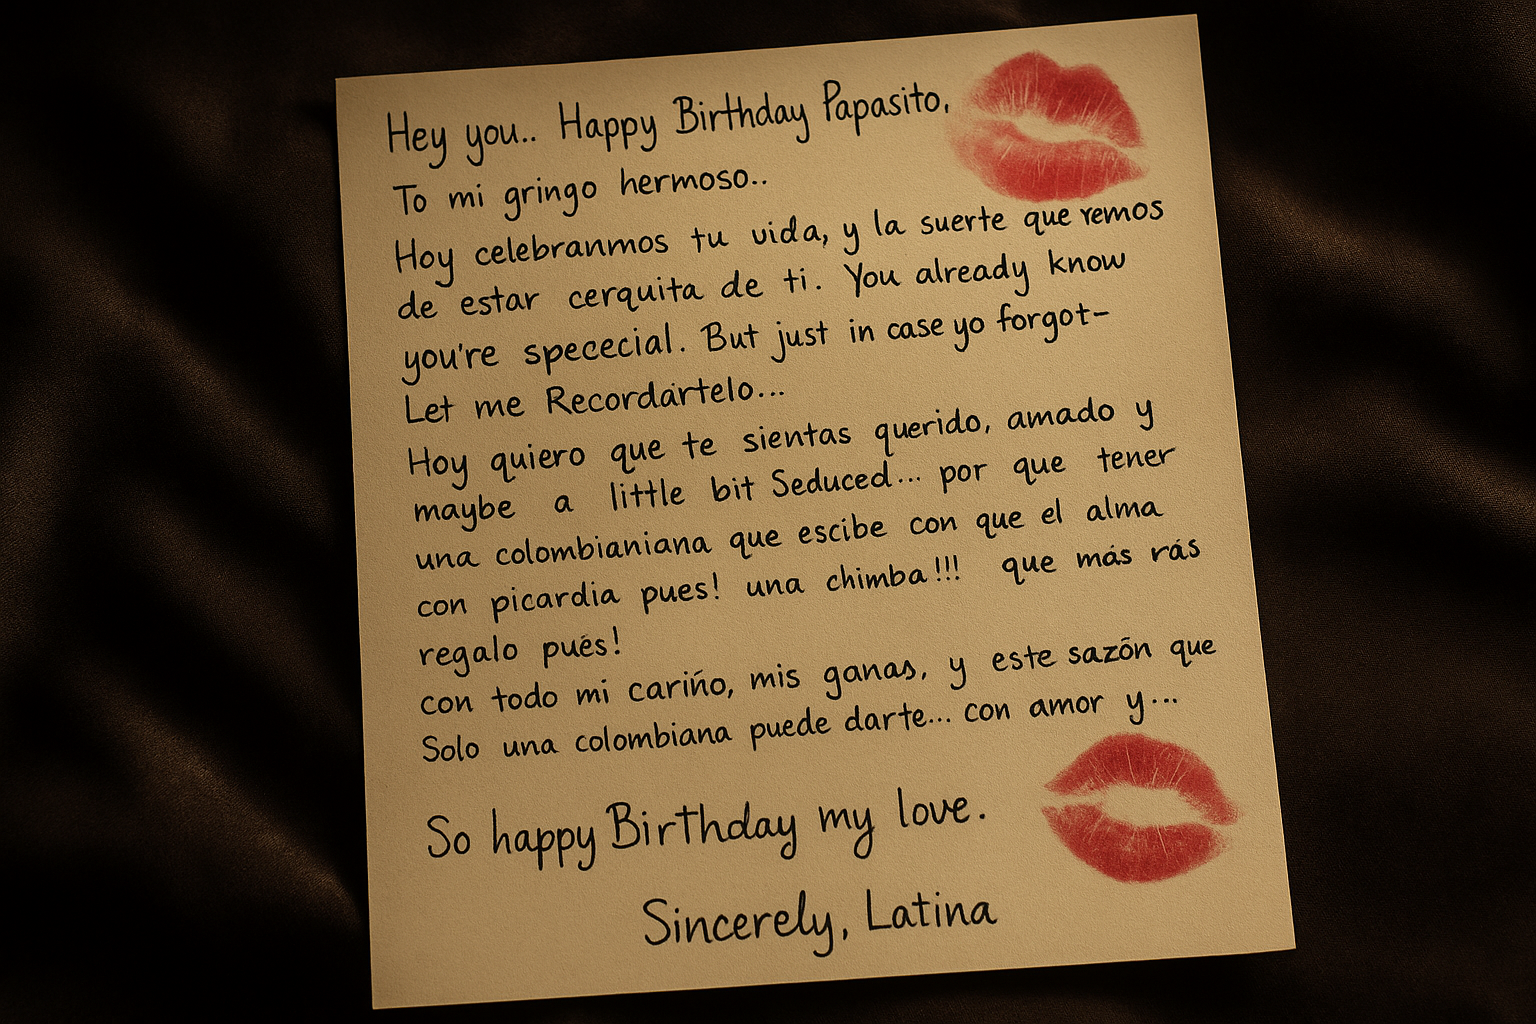 Hey you.. Happy Birthday Papasito,
To mi gringo hermoso..
Hoy celebranmos tu vida, y la suerte que remos
de estar cerquita de ti. You already know
you're spececial. But just in case yo forgot-
Let me Recordártelo...
Hoy quiero que te sientas querido, amado y
maybe a little bit Seduced... por que tener
una colombianiana que escibe con que el alma
con picardia pues! una chimba!!! que más rás
regalo pués!
con todo mi cariño, mis ganas, y este sazón que
Solo una colombiana puede darte... con amor y...
So happy Birthday my love.
Sincerely, Latina